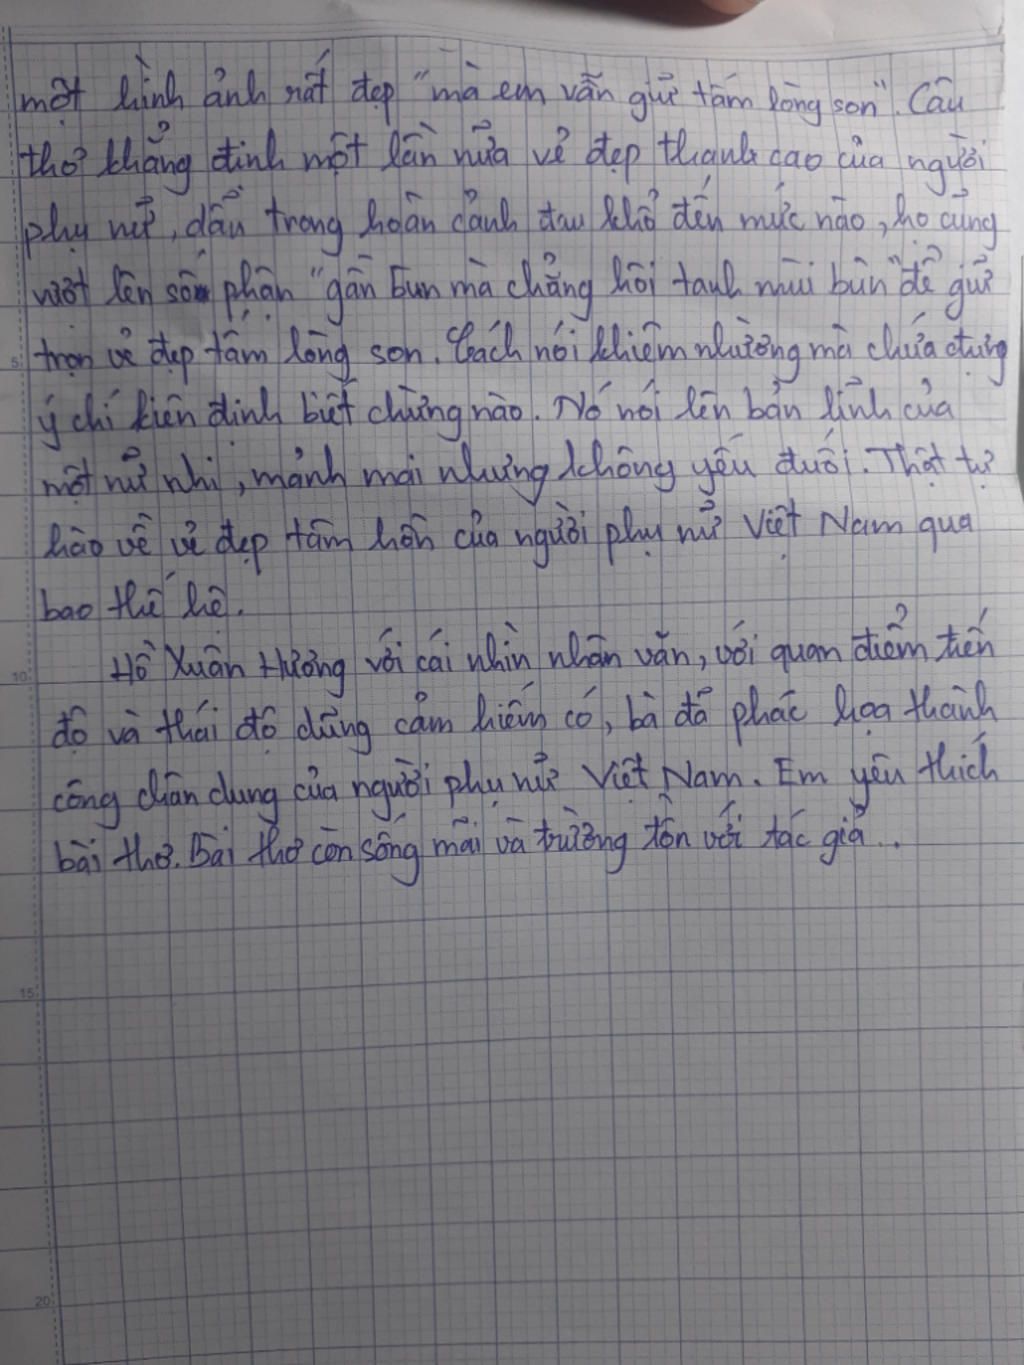 một hình ảnh rất đẹp "mà em vẫn giữ tấm lòng son". Câu
thơ khẳng định một lần nữa vẻ đẹp thanh cao của người
phụ nữ, dẫu trong hoàn cảnh đau khổ đến mức nào, họ cũng
vượt lên số phận "gần bùn mà chẳng hôi tanh mùi bùn" để giữ
trọn vẻ đẹp tấm lòng son. Cách nói khiêm nhường mà chứa đựng
5
ý chí kiên định biết chừng nào. Nó nói lên bản lĩnh của
một nữ nhi, mảnh mai nhưng không yếu đuối. Thật tự
hào về vẻ đẹp tâm hồn của người phụ nữ Việt Nam qua
bao thế hệ.
Hồ Xuân Hương với cái nhìn nhân văn, với quan điểm tiến
10
độ và thái độ dũng cảm hiếm có, bà đã phác họa thành
công chân dung của người phụ nữ Việt Nam. Em yêu thích
bài thơ. Bài thơ còn sống mãi và trường tồn với tác giả...
15
20